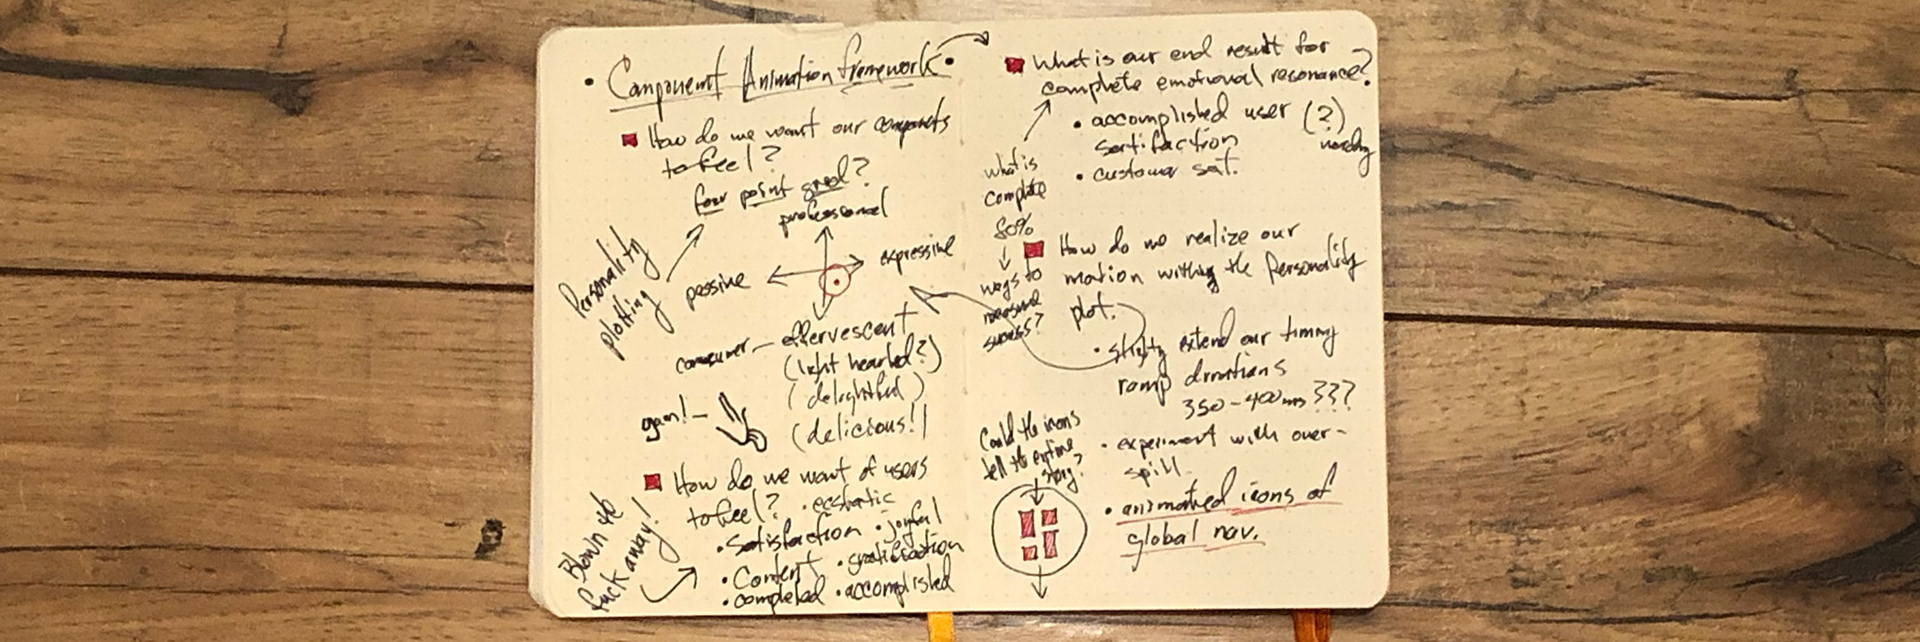 • Component Animation framework •
How do we want our components
to feel?
four point grid?
professional
Personality
plotting
passive
expressive
consumer — effervescent
(light hearted?)
(delightful)
(delicious!)
again! —
How do we want of users
to feel? • ecstatic
• Satisfaction • joyful
• Content • gratification
• completed • accomplished
Blown the
fuck away!
What is our end result for
complete emotional resonance?
• accomplished user (?)
satisfaction
• customer sat.
what is
complete
80%
ways to
measure
success?
How do we realize our
motion within the Personality
plot.
• slightly extend our timing
ramp durations
350-400ms???
• experiment with over-
spill
Could the icons
tell the entire
story?
• animated icons of
global nav.